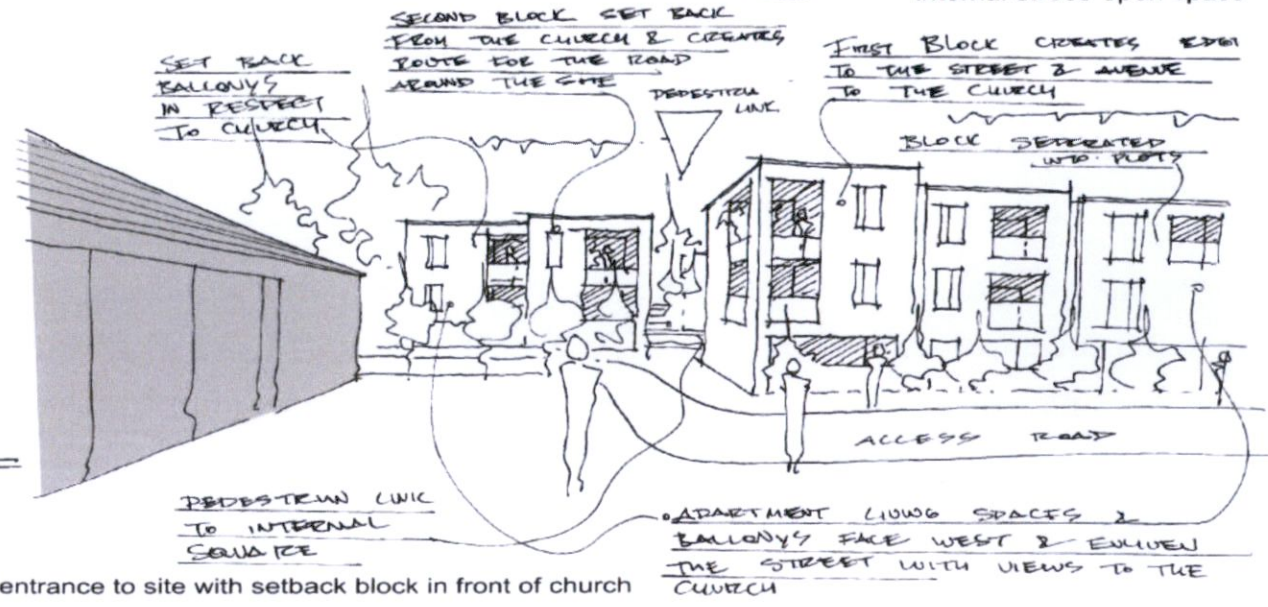 SECOND BLOCK SET BACK
FROM THE CHURCH & CREATES
ROUTE FOR THE ROAD
AROUND THE SITE
SET BACK
BALLONYS
IN RESPECT
TO CHURCH
PEDESTRIAN
LINK
FIRST BLOCK CREATES EDGE
TO THE STREET & AVENUE
TO THE CHURCH
BLOCK SEPERATED
INTO PLOTS
ACCESS ROAD
PEDESTRIAN LINK
TO INTERNAL
SQUARE
APARTMENT LIVING SPACES &
BALLONYS FACE WEST & ENLIVEN
THE STREET WITH VIEWS TO THE
CHURCH
entrance to site with setback block in front of church